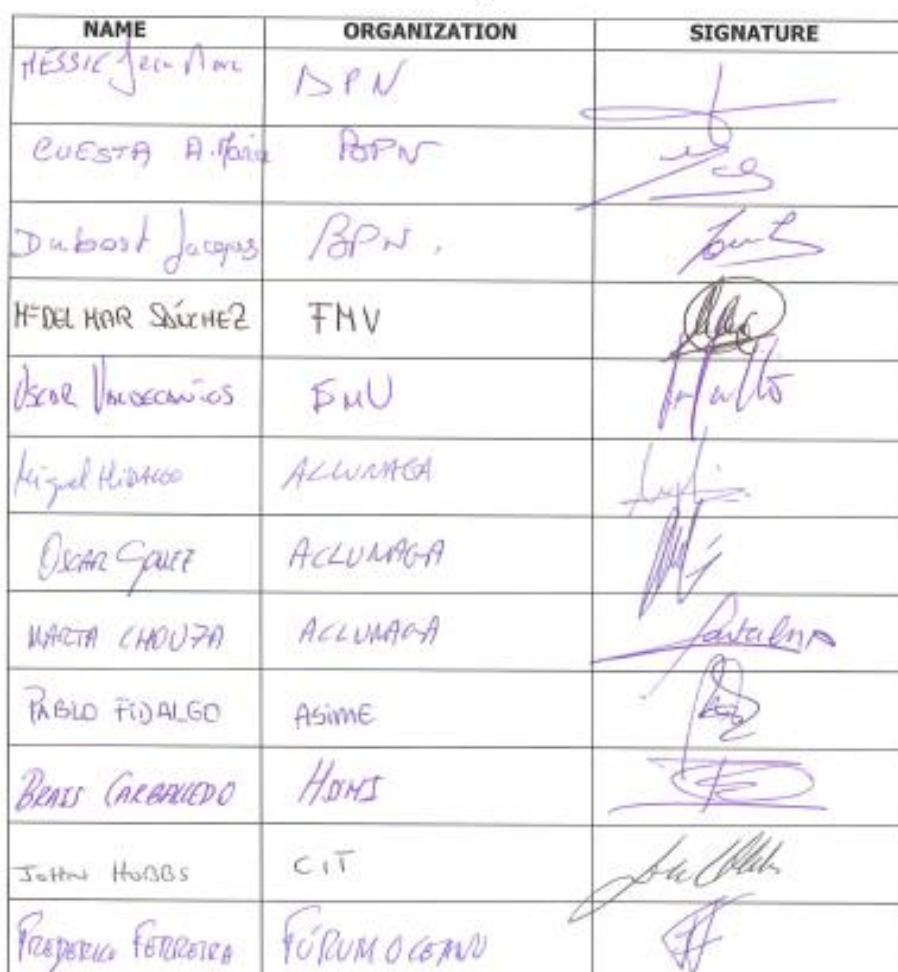 NAME ORGANIZATION SIGNATURE
MESSIE Jean Marc BPN
CUESTA A. Maria BPN
Dubost Jacques BPN.
Mª DEL MAR SÁNCHEZ FMV
OSCAR VALDECANTOS FMV
Miguel HIDALGO ACLUNAGA
OSCAR GOMEZ ACLUNAGA
MARTA CHOUZA ACLUNAGA
PABLO FIDALGO ASIME
BRAIS CARBALLEDO
JOHN HOBBS CIT
FREDERICO FERREIRA FÓRUM OCEANO